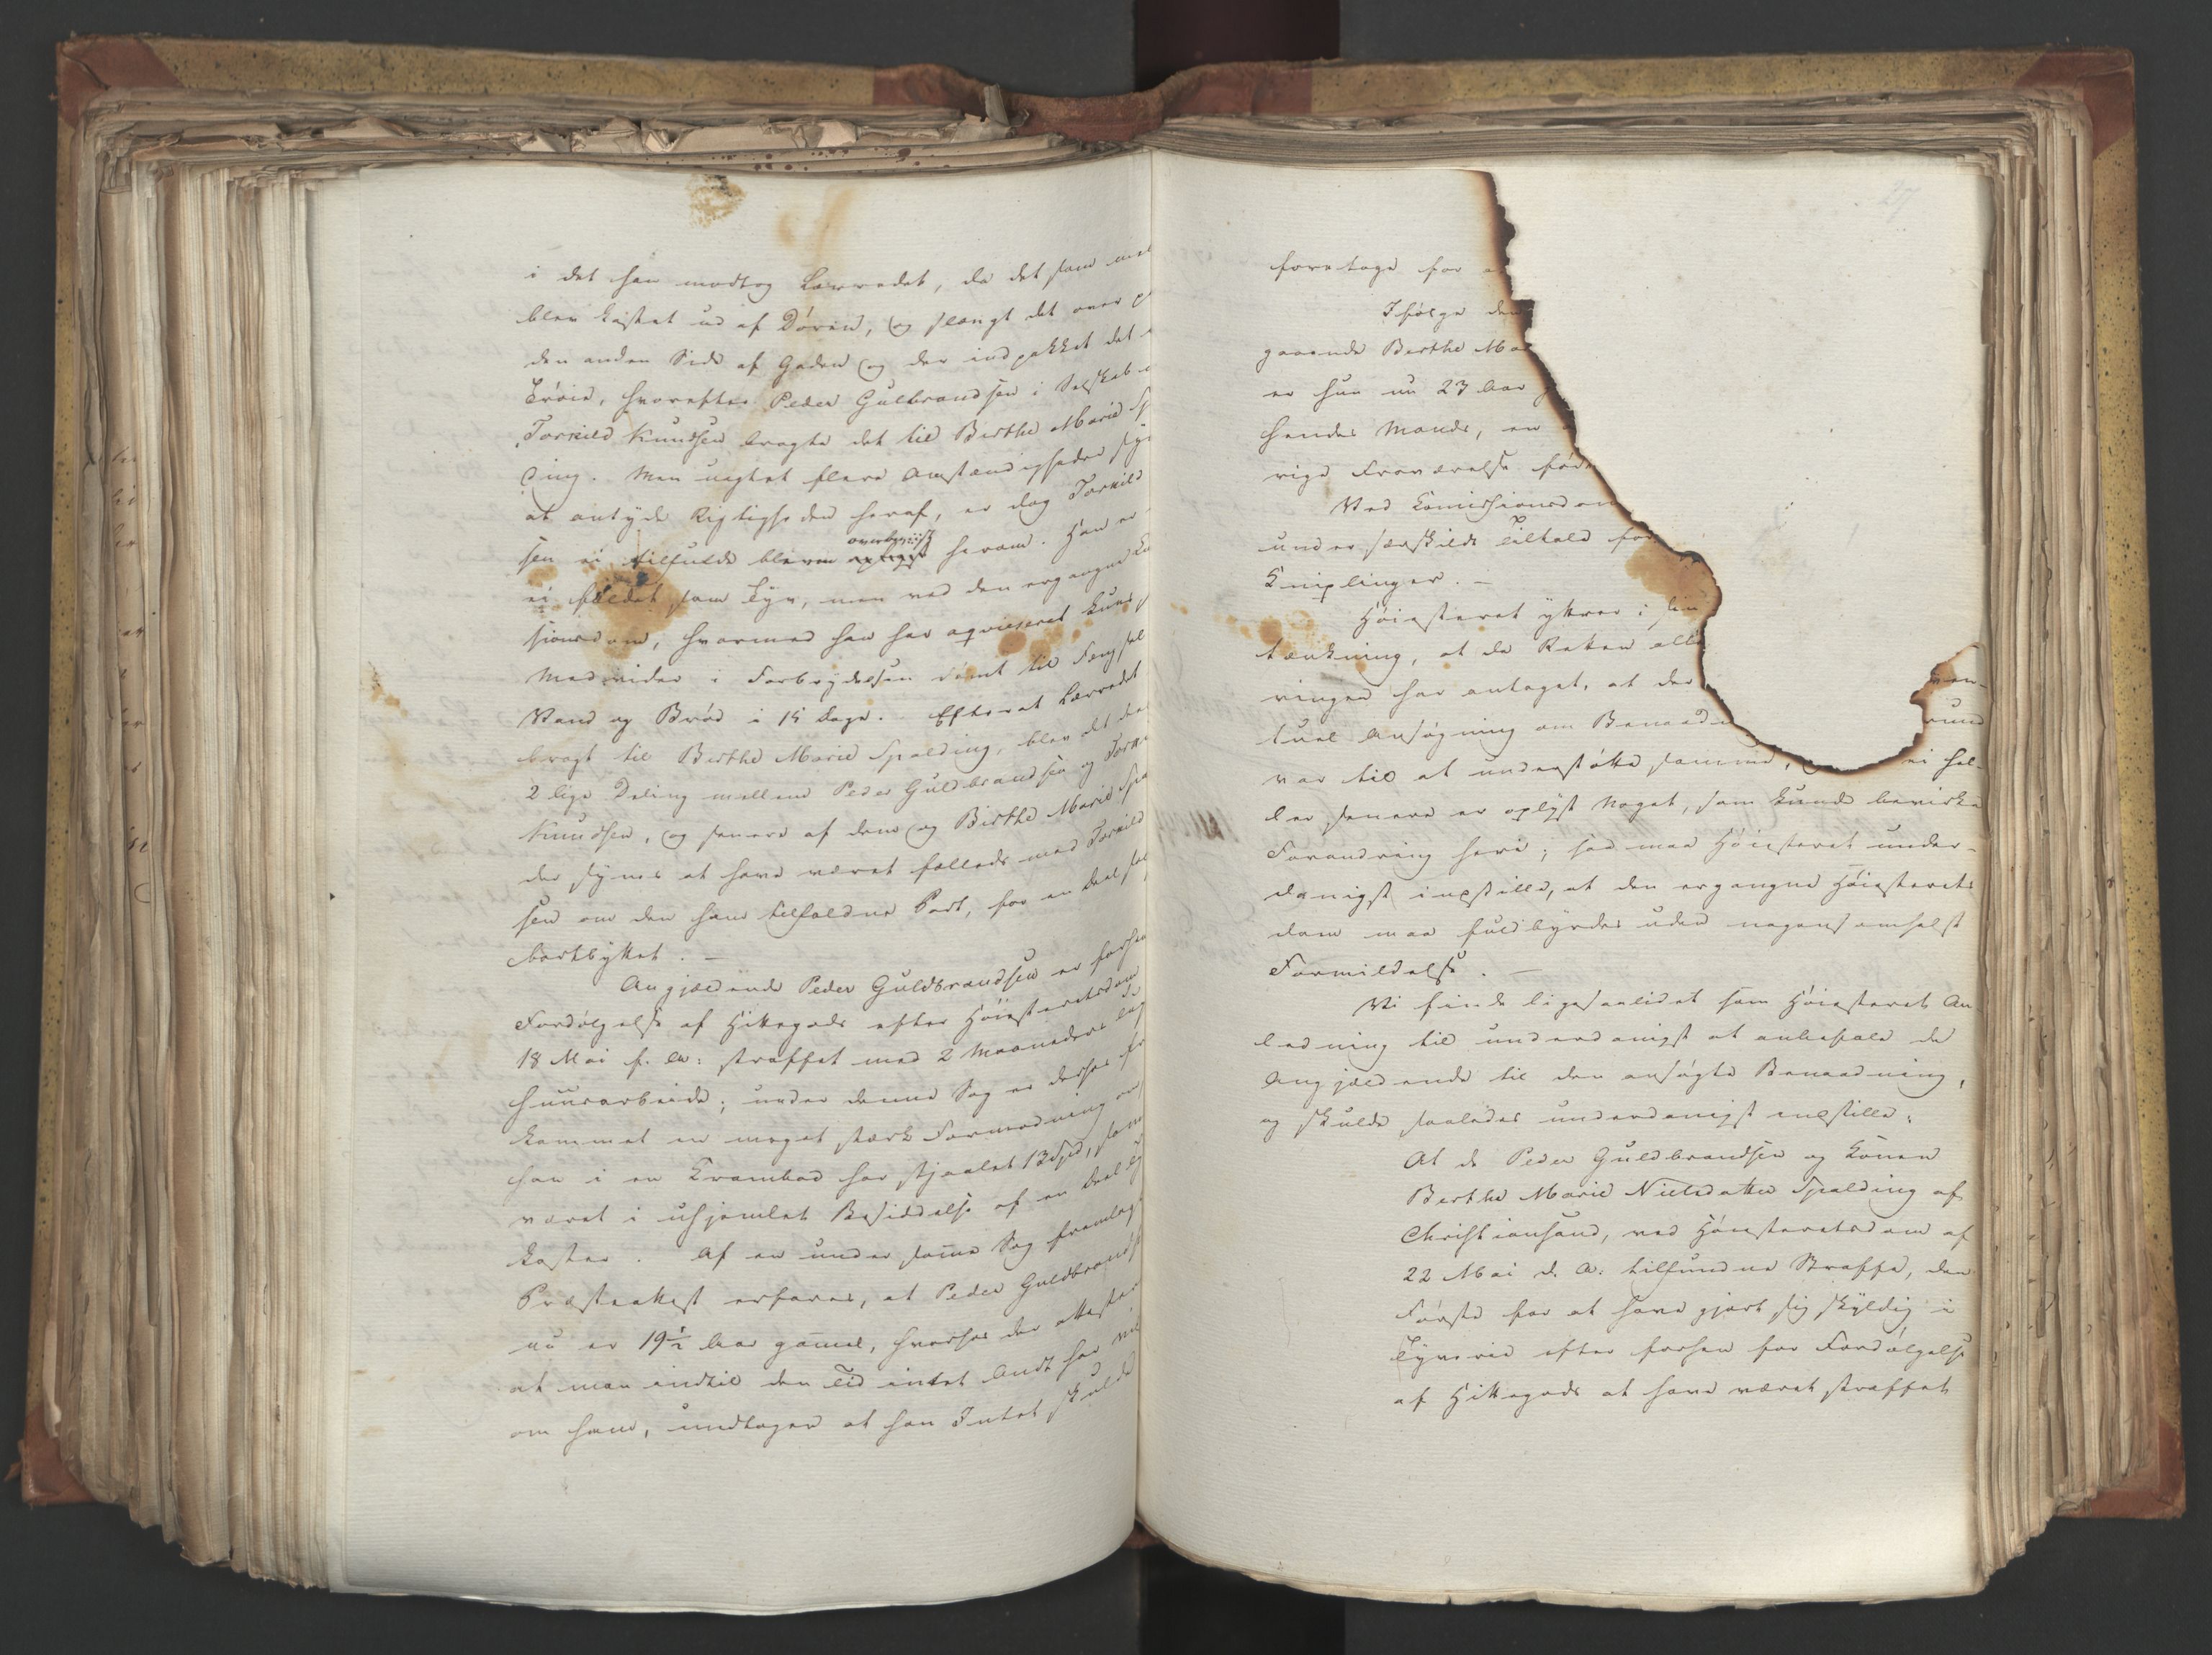 i det han modtog Lærredet, da det som
blev kastet ud af Døren, og slængt det over
den anden Side af Gaden og der indpakket det
Trøie, hvorefter Peder Gulbrandsen i Selskab
Torkild Knudsen bragte det til Berthe Marie
ding. Men uagtet flere Omstændigheder
at antyde Rigtigheden heraf, er dog Torkild
sen ei tilfulde bleven overbeviist herom. Han er
ei fældet som Tyv, men ved den ergangne
sionsdom, hvormed han har aqviesceret kuns
Medvider i Forbrydelsen dømt til Fængsel
Vand og Brød i 15 Dage. Efterat Lærredet
bragt til Berthe Marie Spalding, blev det
2 lige Deling mellem Peder Guldbrandsen og
Knudsen, og senere af dem og Birthe Marie
der synes at have været fælleds med Torkild
sen om den ham tilfaldne Part, for en Deel
bortbyttet. —
Angjældende Peder Guldbrandsen er forhen
Fordølgelse af Hittegods efter Høiesteretsdom
18 Mai f. A: straffet med 2 Maaneders
huusarbeide; under denne Sag er derhos
kommet en meget stærk Formodning om
han i en Krambod har stjaalet 13 Spd, som
været i uhjemlet Besiddelse af en Deel
koster. Af en under samme Sag fremlagt
Præsteattest erfares, at Peder Guldbrands
nu er 19½ Aar gamel, hvorhos der attesteres
at man indtil den Tid intet Andt har
om ham, undtagen at han Intet skulde
foretage for
Ifølge den
gaaende Berthe Ma
er hun nu 23 Aar
hendes Mands, en
rige Fraværelse født
Ved Commissionsdom
under særskilt Tiltale for
Kniplinger. —
Høiesteret yttrer i sin
tænkning, at da Retten
ringen har antaget, at der even-
tuel Ansøgning om Benaadn rund
var til at understøtte samme, ei hel-
ler senere er oplyst Noget, som kunde bevirke
Forandring heri; saa maa Høiesteret under-
danigst inpstille, at den ergangne Høiesterets
dom maa fuldbyrdes uden nogensomhelst
Formildelse. —
Vi finde ligesaalidet som Høiesteret An
ledning til underdanigst at anbefale de
Angjældende til den ansøgte Benaadning,
og skulde saaledes underdanigst inpstille:
At de Peder Guldbrandsen og Konen
Berthe Marie Nielsdatter Spalding af
Christiansand, ved Høiesteretsdom af
22 Mai d. A: tilfundne Straffe, den
Første for at have gjort sig skyldig i
Tyverie efter forhen for Fordølgelse
af Hittegods at have været straffet